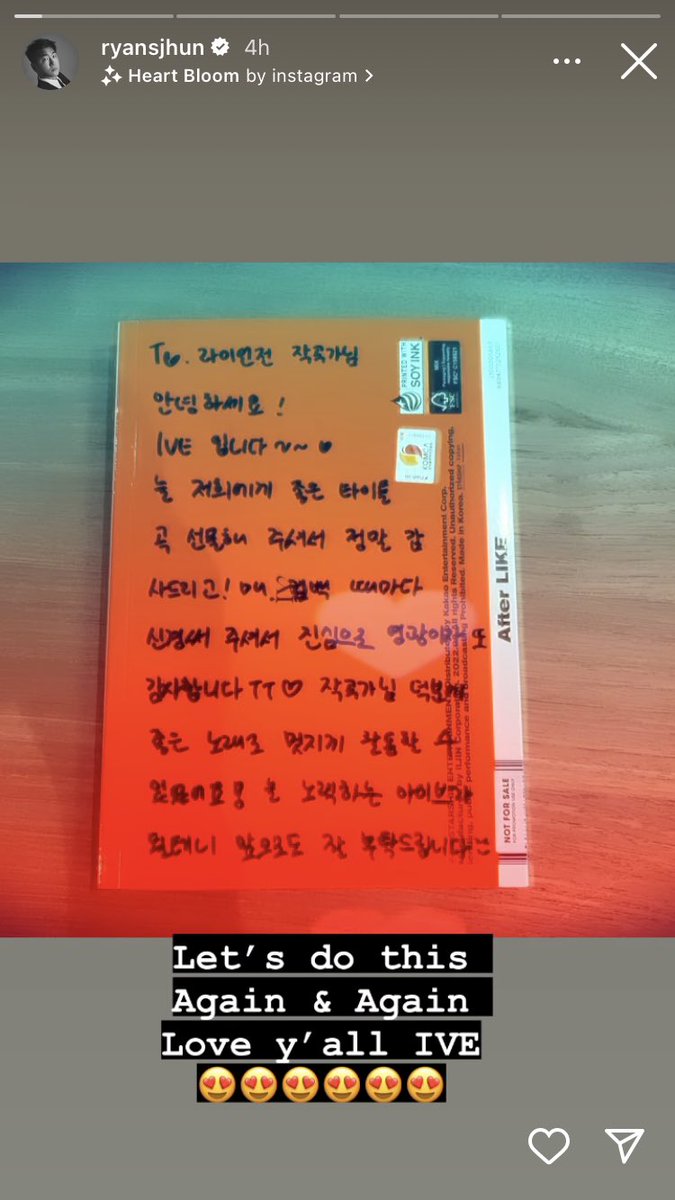 ryansjhun 4h
Heart Bloom by instagram >
To. 라이언전 작곡가님
안녕하세요!
IVE 입니다~~♥
늘 저희에게 좋은 타이틀
곡 선물해 주셔서 정말 감
사드리고! 매 컴백 때마다
신경써 주셔서 진심으로 또
감사합니다 TT♡ 작곡가님 덕분에
좋은 노래로 멋지게 활동할 수
늘 노력하는 아이브가
될테니 앞으로도 잘 부탁드립니다
PRINTED WITH
SOY INK
FSC
KOMCA
Kakao Entertainment Corp.
Rights Reserved. Unauthorized copying,
performance and broadcasting Prohibited. Made in Korea.
After LIKE
NOT FOR SALE
Let's do this
Again & Again
Love y'all IVE
😍😍😍😍😍😍